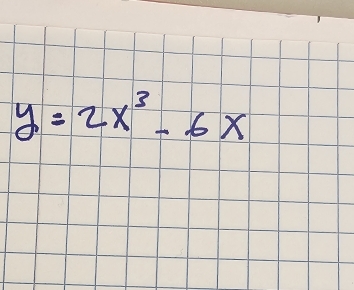 y = 2x³ - 6x